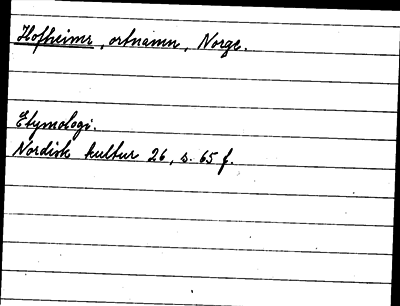 Hofheimr, ortnamn, Norge.
Etymologi.
Nordisk kultur 26, s. 65 f.